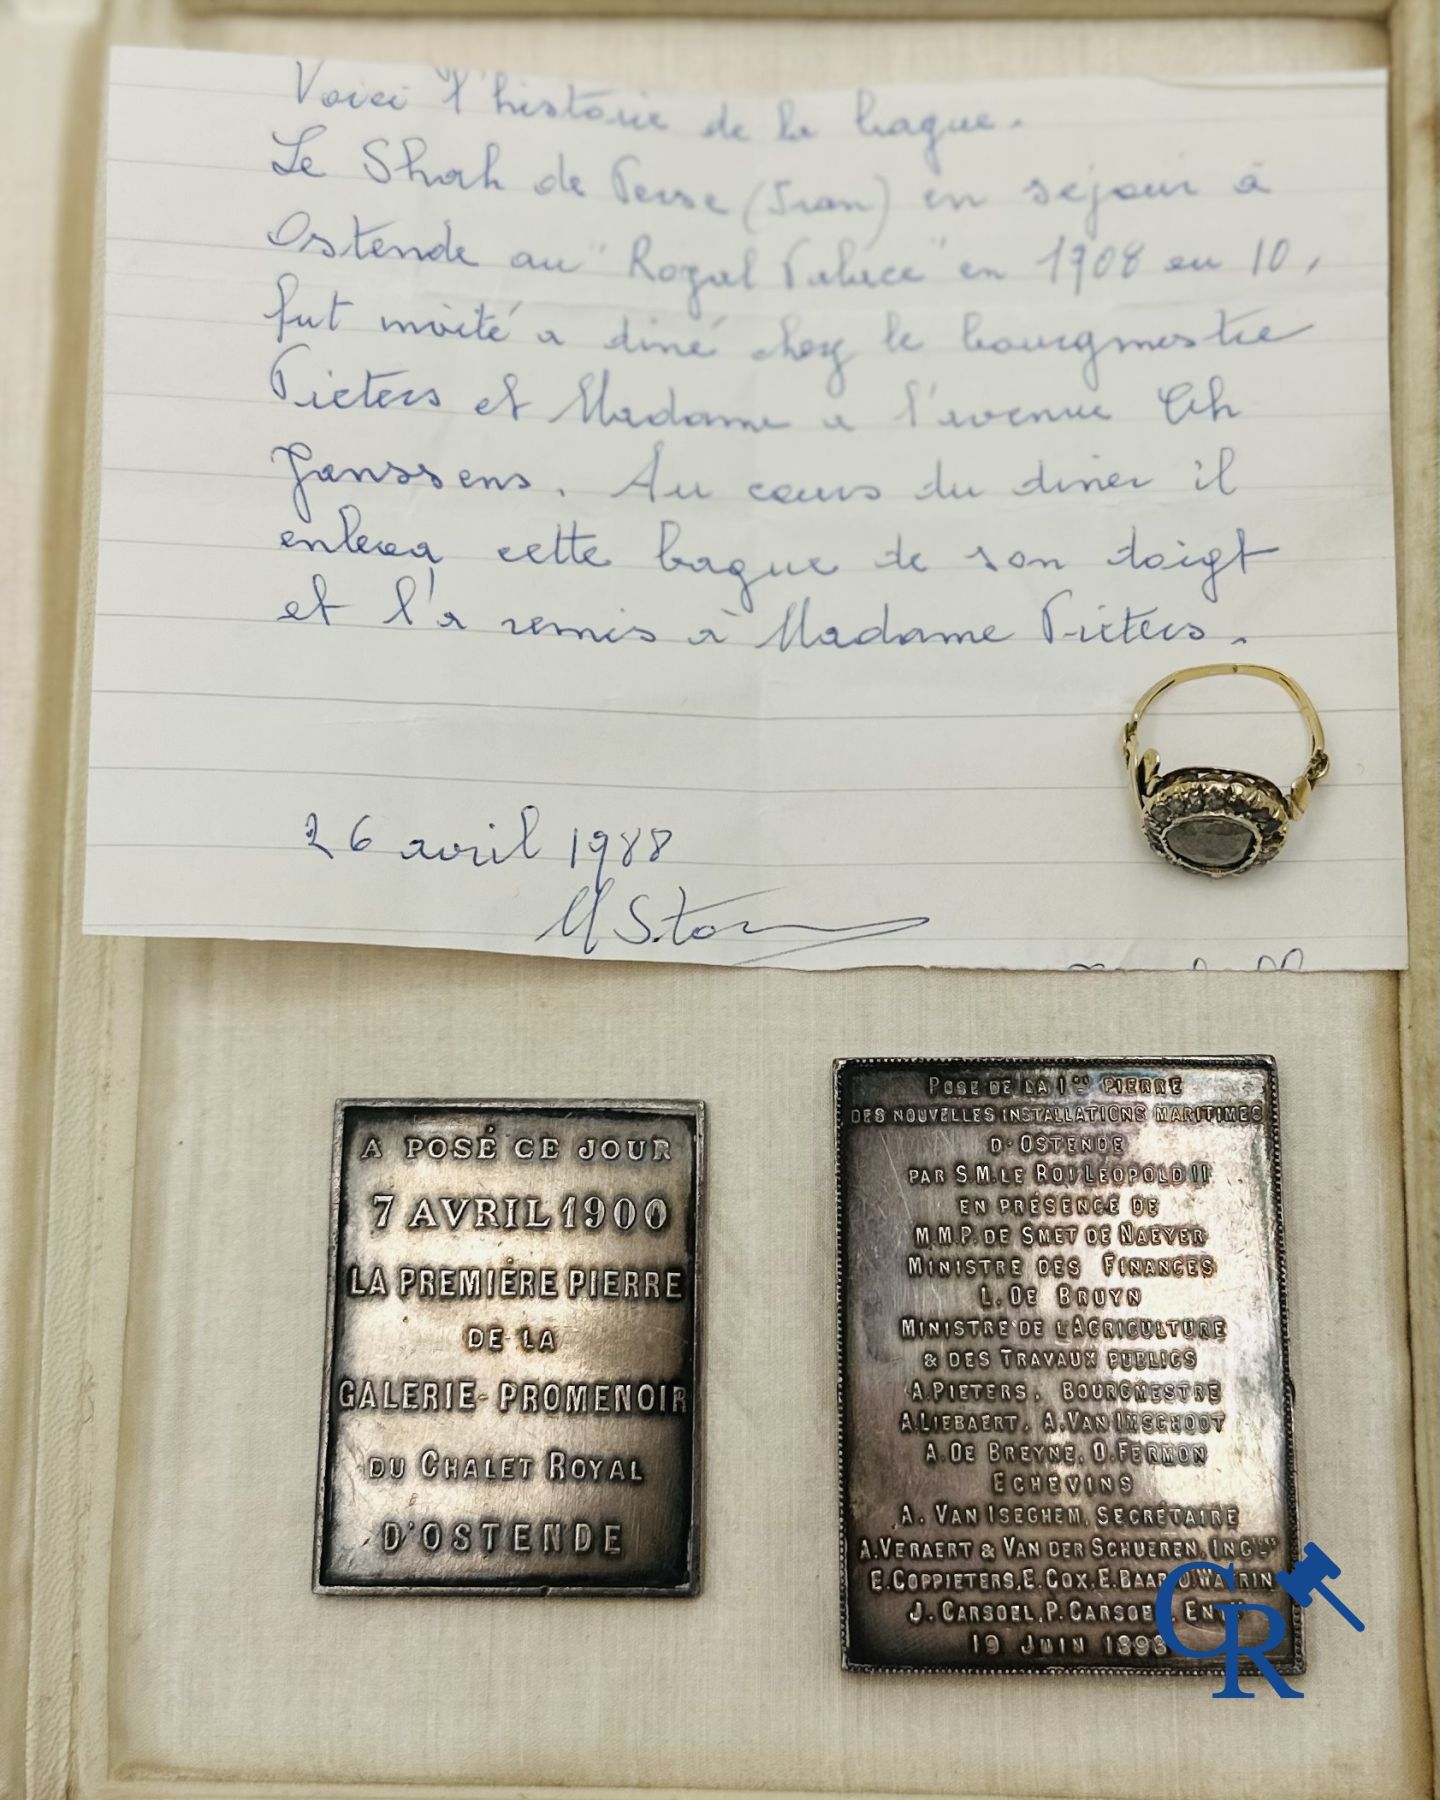 Voici l'histoire de la bague.
Le Shah de Perse (Iran) en séjour à
Ostende au "Royal Palace" en 1908 ou 10,
fut invité a diné chez le bourgmestre
Pieters et Madame a l'avenue Ch
Janssens. Au cours du diner il
enleva cette bague de son doigt
et l'a remis à Madame Pieters.
26 avril 1988
A POSÉ CE JOUR
7 AVRIL 1900
LA PREMIÈRE PIERRE
DE LA
GALERIE-PROMENOIR
DU CHALET ROYAL
D'OSTENDE
POSE DE LA 1RE PIERRE
DES NOUVELLES INSTALLATIONS MARITIMES
D'OSTENDE
PAR S.M. LE ROI LEOPOLD II
EN PRÉSENCE DE
M.M.P. DE SMET DE NAEYER
MINISTRE DES FINANCES
L. DE BRUYN
MINISTRE DE L'AGRICULTURE
& DES TRAVAUX PUBLICS
A. PIETERS, BOURGMESTRE
A. LIEBAERT, A. VAN IMSCHOOT
A. DE BREYNE, O. FERMON
ECHEVINS
A. VAN ISEGHEM, SECRÉTAIRE
A. VERAERT & VAN DER SCHUEREN, INGRS
E. COPPIETERS, E. COX, E. WATRIN
J. CARSOEL, P.
19 JUIN
GR